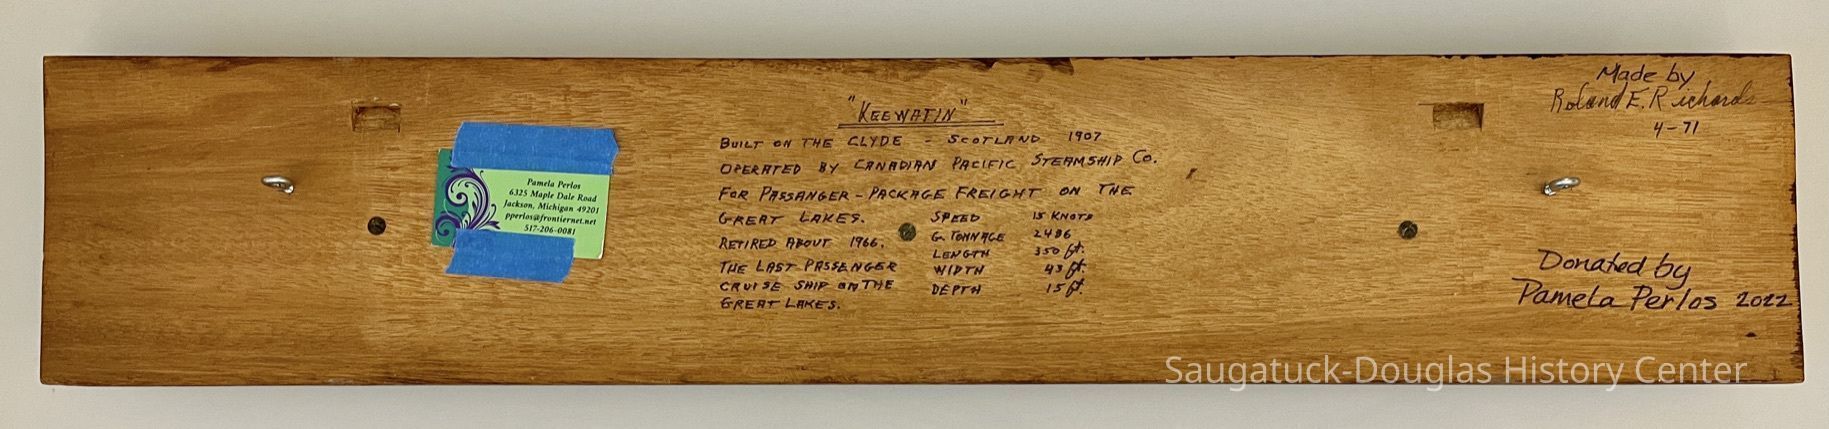 "KEEWATIN"
BUILT ON THE CLYDE - SCOTLAND 1907
OPERATED BY CANADIAN PACIFIC STEAMSHIP Co.
FOR PASSANGER - PACKAGE FREIGHT ON THE
GREAT LAKES.
RETIRED ABOUT 1966.
THE LAST PASSENGER
CRUISE SHIP ON THE
GREAT LAKES.
SPEED 15 KNOTS
G. TONNAGE 2486
LENGTH 350 ft.
WIDTH 43 ft.
DEPTH 15 ft.
Pamela Perlos
6325 Maple Dale Road
Jackson, Michigan 49201
pperlos@frontiernet.net
517-206-0081
Made by
Roland E. Richards
4-71
Donated by
Pamela Perlos 2022
Saugatuck-Douglas History Center